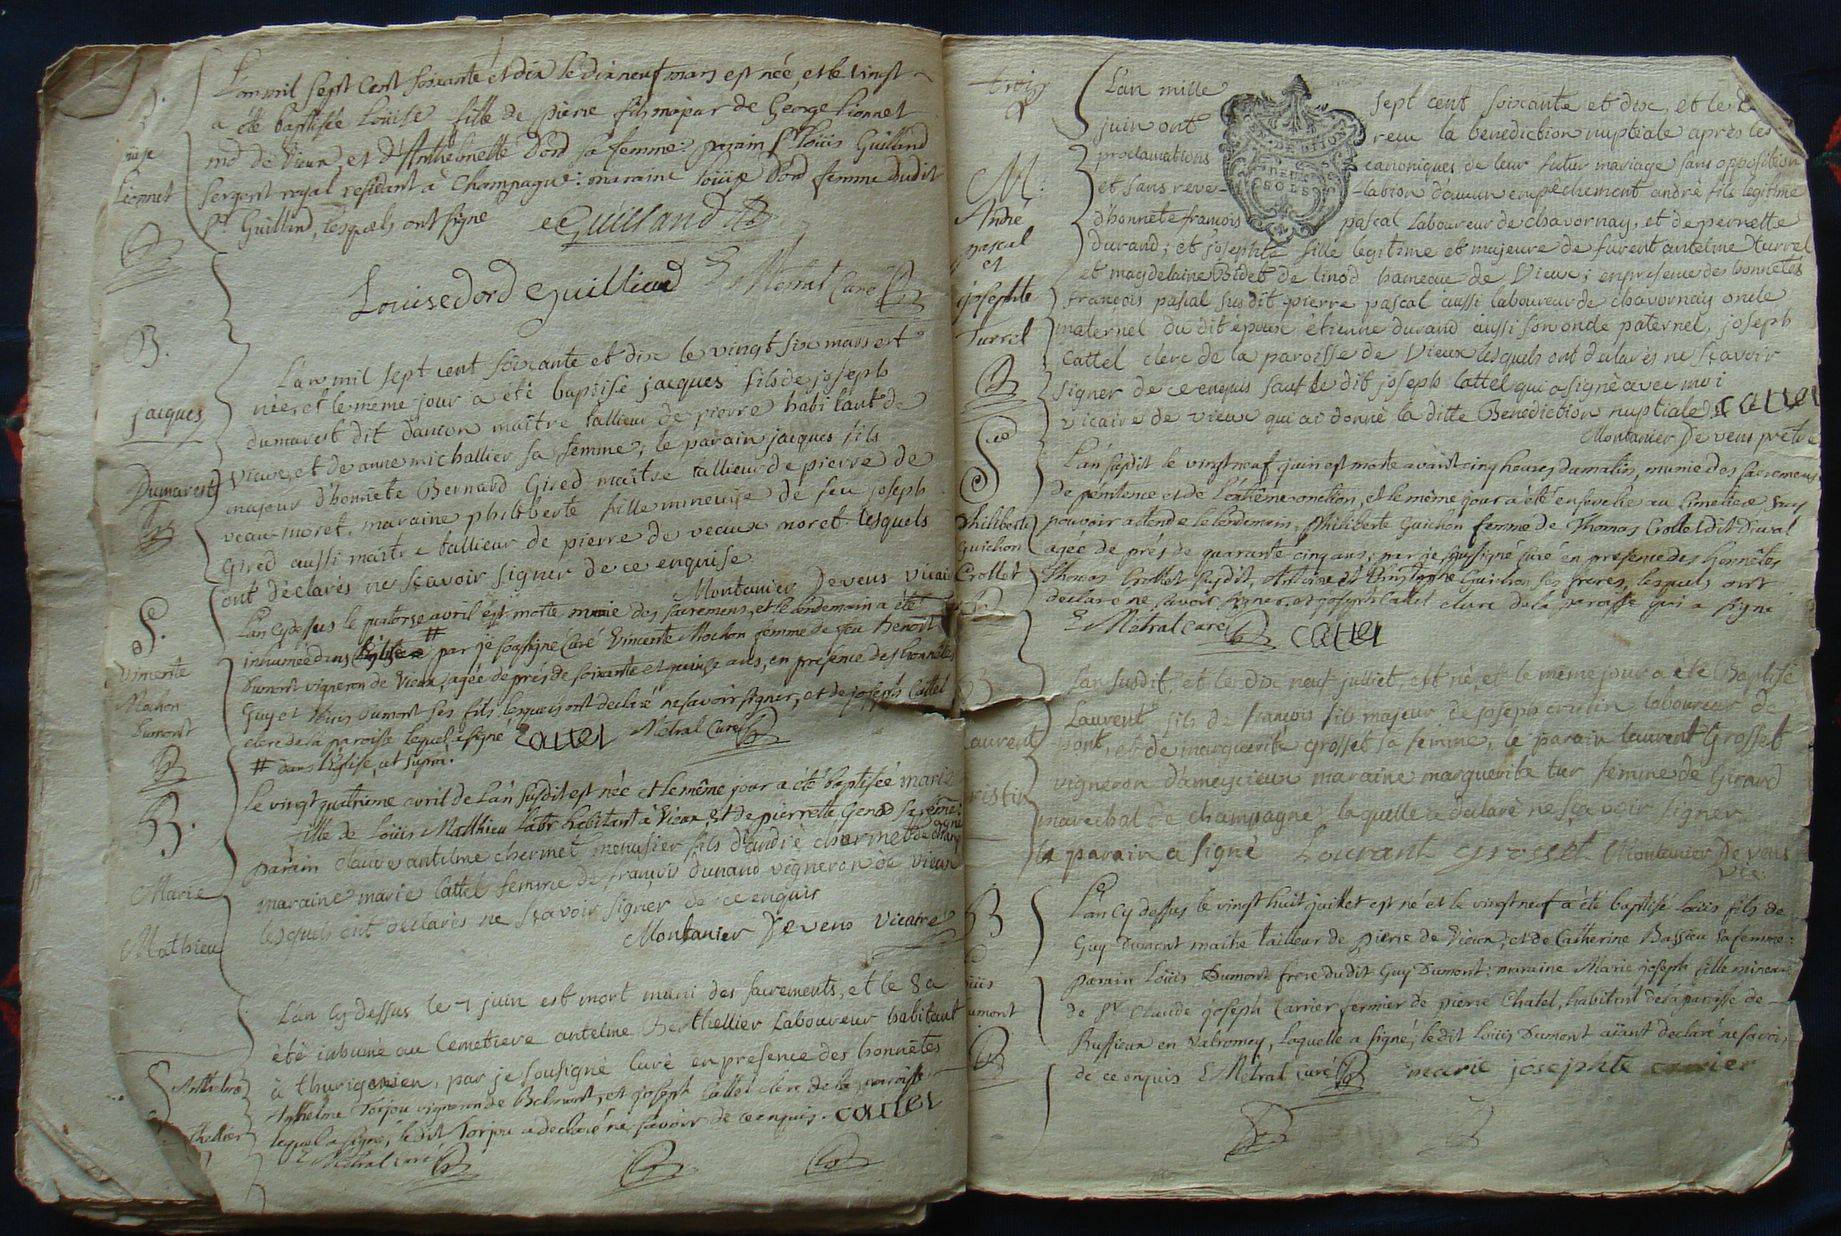 L'an mil sept cent soixante et dix le dix neuf mars est née et le vingt
a été baptisée Loüise fille de pierre fils majeur de George Lionnet
md de Vieux et d'Anthelmette Dord sa femme: parain Sr Loüis Guilland
sergent royal residant a Champagne: maraine loüise Dord femme dudit
Sr Guilland, lesquels ont signé Guilland
Lionnet
Louise dord Guilliand Metral Curé
B.
jacques
Dumarest
L'an mil sept cent soixante et dix le vingt six mars est
né et le meme jour a été baptisé jacques fils de joseph
dumarest dit dancon maître tallieur de pierre habitant de
Vieux, et de anne michallier sa femme; le parain jacques fils
majeur d'honnete Bernard Gired maitre tallieur de pierre de
veaux moret, maraine philiberte fille mineure de feu joseph
Gired aussi maitre tallieur de pierre de veaux moret lesquels
ont déclarés ne sçavoir signer de ce enquise
Montanier Devens vicaire
S.
Vincente
Mochon
Dumont
L'an cy dessus le quatorse avril est morte munie des sacremens, et le lendemain a été
inhumée dans # par je soussigné Curé Vincente Mochon femme de feu Benoit
Dumont vigneron de Vieux, agée de prés de soixante et quinze ans, en presence des honnêtes
Guy et Loüis Dumont ses fils lesquels ont declaré ne savoir signer, et de joseph Cattel
clerc de la paroisse lequel a signé cattel Metral Curé
# dans l'église, ut supra.
B.
Marie
Mathieu
Le vingt quatrieme avril de l'an susdit est née et le même jour a été baptisée marie
fille de Loüis Matthieu labr habitant à Vieux, et de pierrette Genod sa feme:
parain claude antelme chermet menusier fils d'andré chermet de
maraine marie Cattel femme de françois durand vigneron de vieux
lesquels ont declarés ne sçavoir signer de ce enquis
Montanier Devens vicaire
L'an cy dessus le 7 juin est mort muni des sacrements, et le 8 a
été inhumé au Cemetiere antelme Berthellier Laboureur habitant
à thurignien, par je sousigné Curé en presence des honnêtes
Anthelme Torjou vigneron de Belmont, et joseph Cattel clerc de la paroisse
lequel a signé, le dit Torjou a declaré ne savoir de ce enquis. cattel
Metral curé
M.
André
pascal
et
josephte
Turrel
L'an mille sept cent soixante et dix, et le
juin ont recu la benediction nuptiale après les
proclamations canoniques de leur futur mariage sans opposition
et sans reve- -lation d'aucun empechement andré fils legitime
d'honnete francois pascal Laboureur de chavornay, et de pernette
durand; et josephte fille legitime et majeure de furent antelme turrel
et magdelaine Bidet de linod hameau de Vieux; en presence des honnetes
françois pascal susdit pierre pascal aussi laboureur de chavornay oncle
maternel du dit époux étienne durand aussi son oncle paternel, joseph
Cattel clerc de la paroisse de Vieux lesquels ont declarés ne sçavoir
signer de ce enquis sauf le dit joseph Cattel qui a signé avec moi
vicaire de vieux qui ai donné la ditte Benediction nuptiale cattel
Montanier Devens prêtre
S
Philiberte
Guichon
Crollet
L'an susdit le vingt neuf juin est morte avant cinq heures du matin, munie des sacremens
de pénitence et de l'extrême onction, et le même jour a été ensevelie au Cimetiere sans
pouvoir attendre le lendemain, Philiberte Guichon femme de Thomas Crollet dit Duval
agée de prés de quarante cinq ans; par je soussigné curé en presence des honnêtes
Thomas Crollet susdit, Antoine et Christophe Guichon ses freres, lesquels ont
declaré ne savoir signer, et joseph Cattel clerc de la paroisse qui a signé
Metral curé cattel
B
Laurent
L'an susdit, et le dix neuf julliet, est né, et le même jour a été Baptisé
Laurent fils de francois fils majeur de joseph laboureur de
pont, et de marguerite grosset sa femme; le parain laurent Grosset
vigneron d'ameyzieux maraine marguerite tur femme de Girard
marechal de champagne, laquelle a declaré ne sça voir signer
le parain a signé Lourant grosset Montanier Devens
vic.
B
Loüis
Dumont
L'an cy dessus le vingt huit juillet est né et le vingt neuf a été baptisé Loüis fils de
Guy Dumont maitre tailleur de pierre de Vieux, et de Catherine Bassieu sa femme:
parain Loüis Dumont frere dudit Guy Dumont: maraine Marie joseph fille mineure
de Sr Claude joseph Carrier fermier de pierre Chatel, habitant de la paroisse de
Ruffieux en Valromey, laquelle a signé, le dit Loüis Dumont aïant declaré ne savoir
de ce enquis Metral curé marie josephte carrier